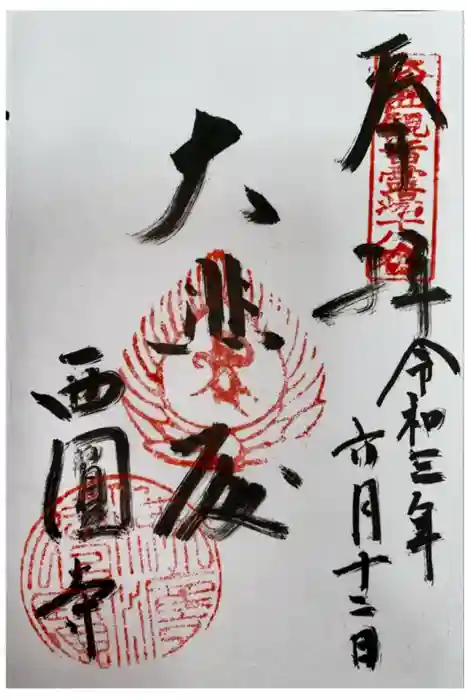 奉拝
觀音霊場十八番
令和三年
六月十二日
大悲殿
西圓寺